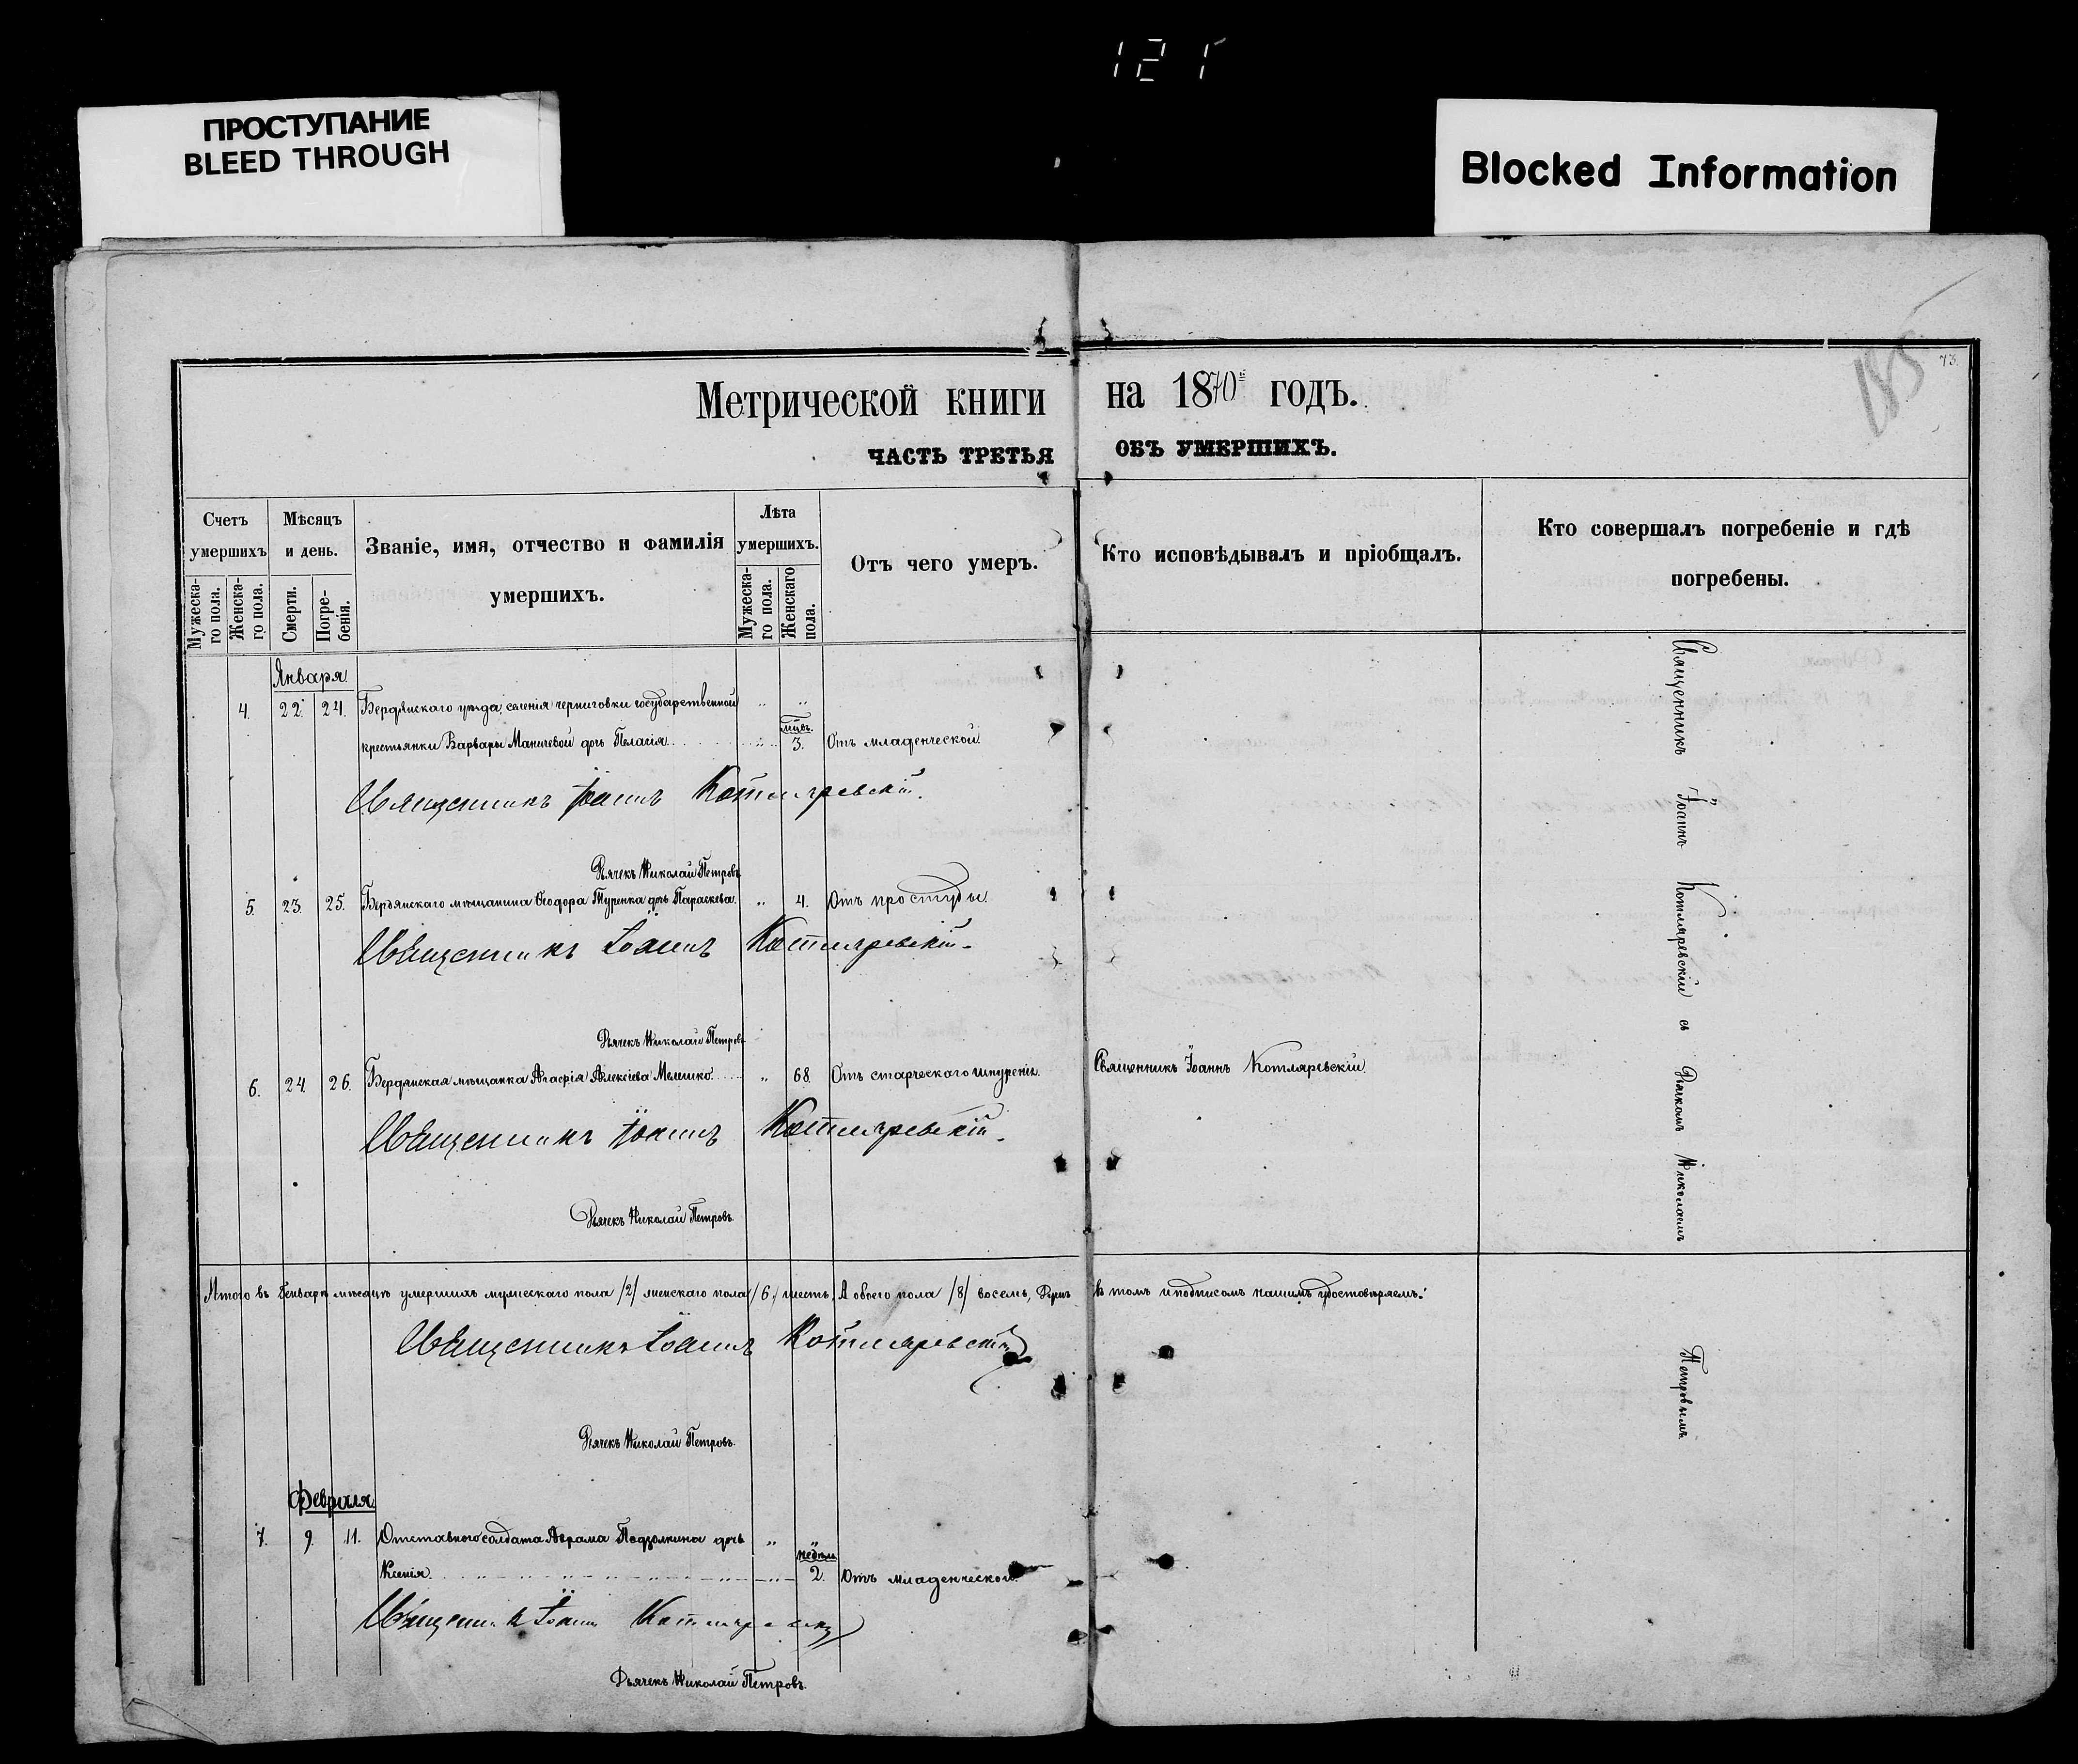 121
ПРОСТУПАНИЕ
BLEED THROUGH
Blocked Information
185
73
Метрической книги на 1870й годъ.
ЧАСТЬ ТРЕТЬЯ ОБЪ УМЕРШИХЪ.
Счетъ умершихъ
Мужеска-го пола.
Женска-го пола.
Мѣсяцъ и день.
Смерти.
Погре-бенія.
Званіе, имя, отчество и фамилія умершихъ.
Лѣта умершихъ.
Мужеска-го пола.
Женскаго пола.
Отъ чего умеръ.
Кто исповѣдывалъ и пріобщалъ.
Кто совершалъ погребеніе и гдѣ погребены.
Января
4. 22. 24. Бердянскаго уѣзда, селенія черниговки государственной " "
крестьянки Варвары Маничевой дочь Пелагія " мѣс. 3. Отъ младенческой
Священникъ Іоаннъ Котляревскій.
Дьячекъ Николай Петровъ
5. 23. 25. Бердянскаго мѣщанина Ѳеодора Туренка дочь Параскева. " 4. Отъ простуды
Священникъ Іоаннъ Котляревскій.
Дьячекъ Николай Петровъ
6. 24. 26. Бердянская мѣщанка Агафія Алексіева Мелешко " 68. Отъ старческаго Священникъ Іоаннъ Котляревскій.
Священникъ Іоаннъ Котляревскій.
Дьячекъ Николай Петровъ.
Итого въ Генварѣ мѣсяцѣ умершихъ мужескаго пола /2/ женскаго пола /6/ шесть, А обоего пола /8/ восемь, въ томъ и подписомъ нашимъ удостовѣряемъ:
Священникъ Іоаннъ Котляревскій
Дьячекъ Николай Петровъ.
Февраля
7. 9. 11. Отставного солдата Аврама Подзолкина дочь "
Ксенія недѣли 2. Отъ младенческой
Священникъ Іоаннъ Котляревскій
Дьячекъ Николай Петровъ.
Священникъ Іоаннъ Котляревскій съ Дьякомъ Николаемъ Петровымъ